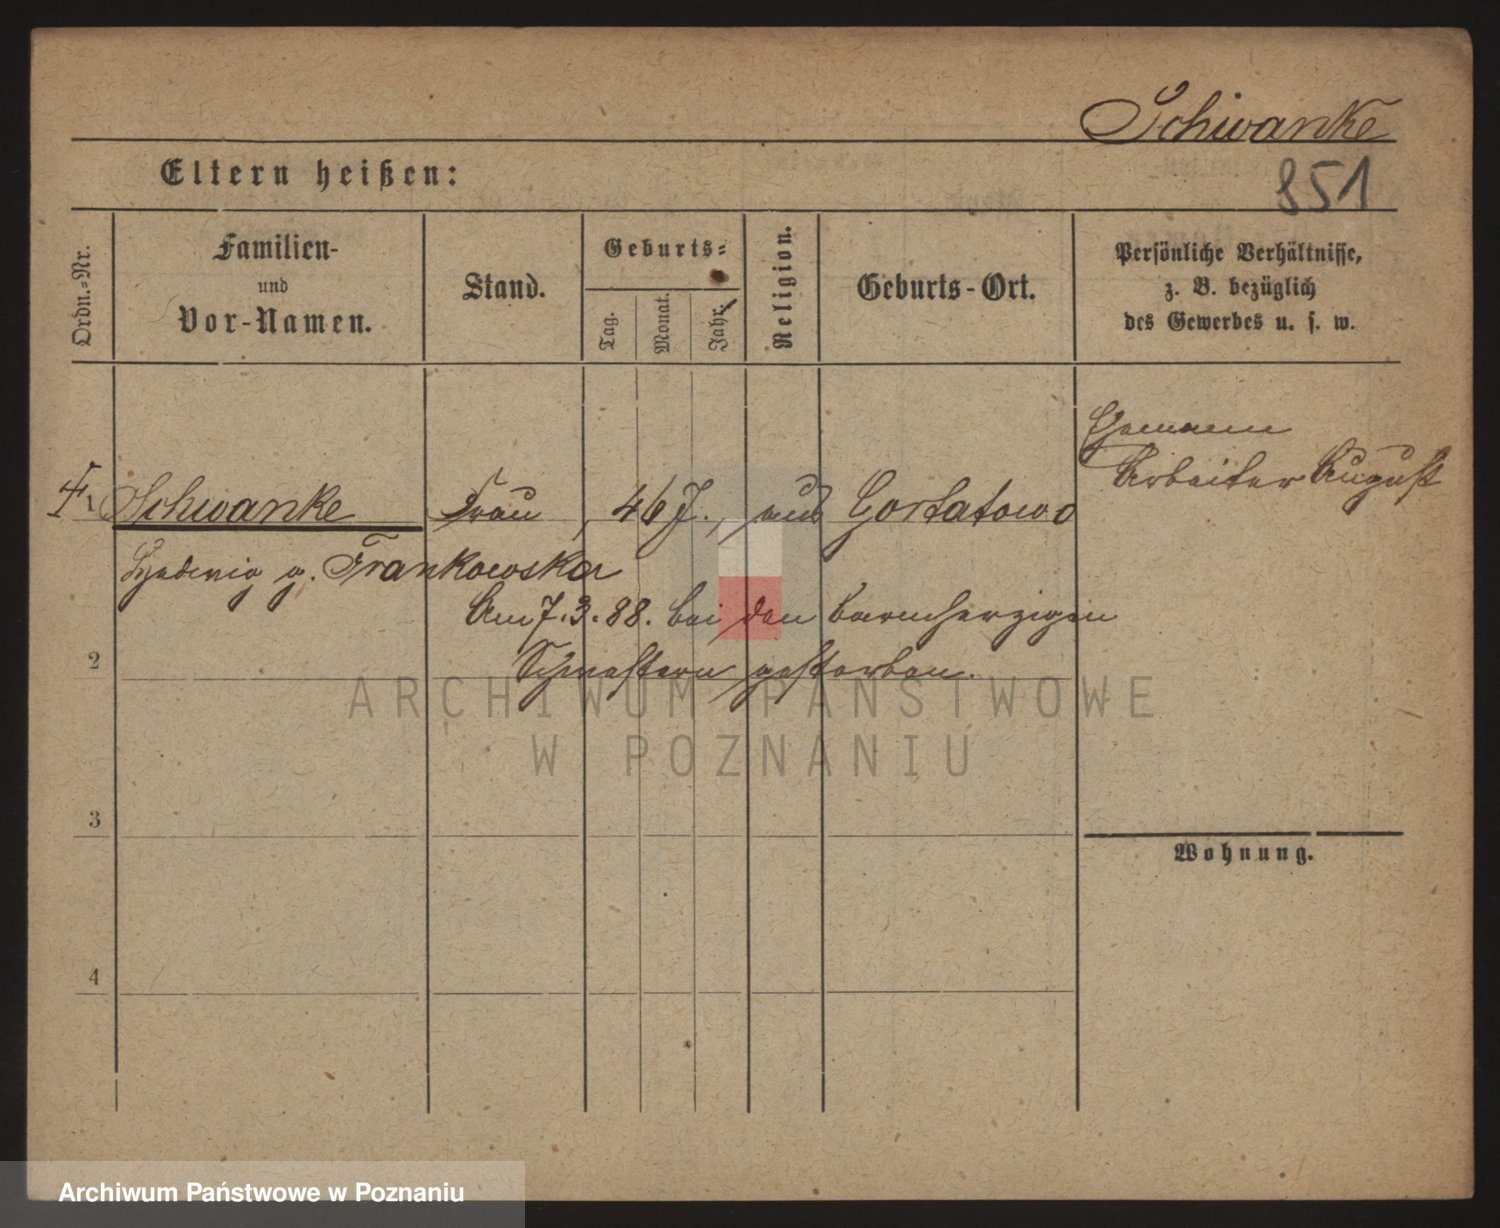 Schwanke
851
Eltern heißen:
Ordn.-Nr.
Familien-
und
Vor-Namen.
Stand.
Geburts-
Tag.
Monat.
Jahr.
Religion.
Geburts-Ort.
Persönliche Verhältnisse,
z. B. bezüglich
des Gewerbes u. s. w.
Ehemann
Arbeiter August
1 Schwanke Frau, 46 J., aus Gortatowo
Hedwig g. Frankowska
Am 7.3.88. bei den barmherzigen
Schwestern gestorben.
2
ARCHIWUM PAŃSTWOWE
W POZNANIU
3
Wohnung.
4
Archiwum Państwowe w Poznaniu